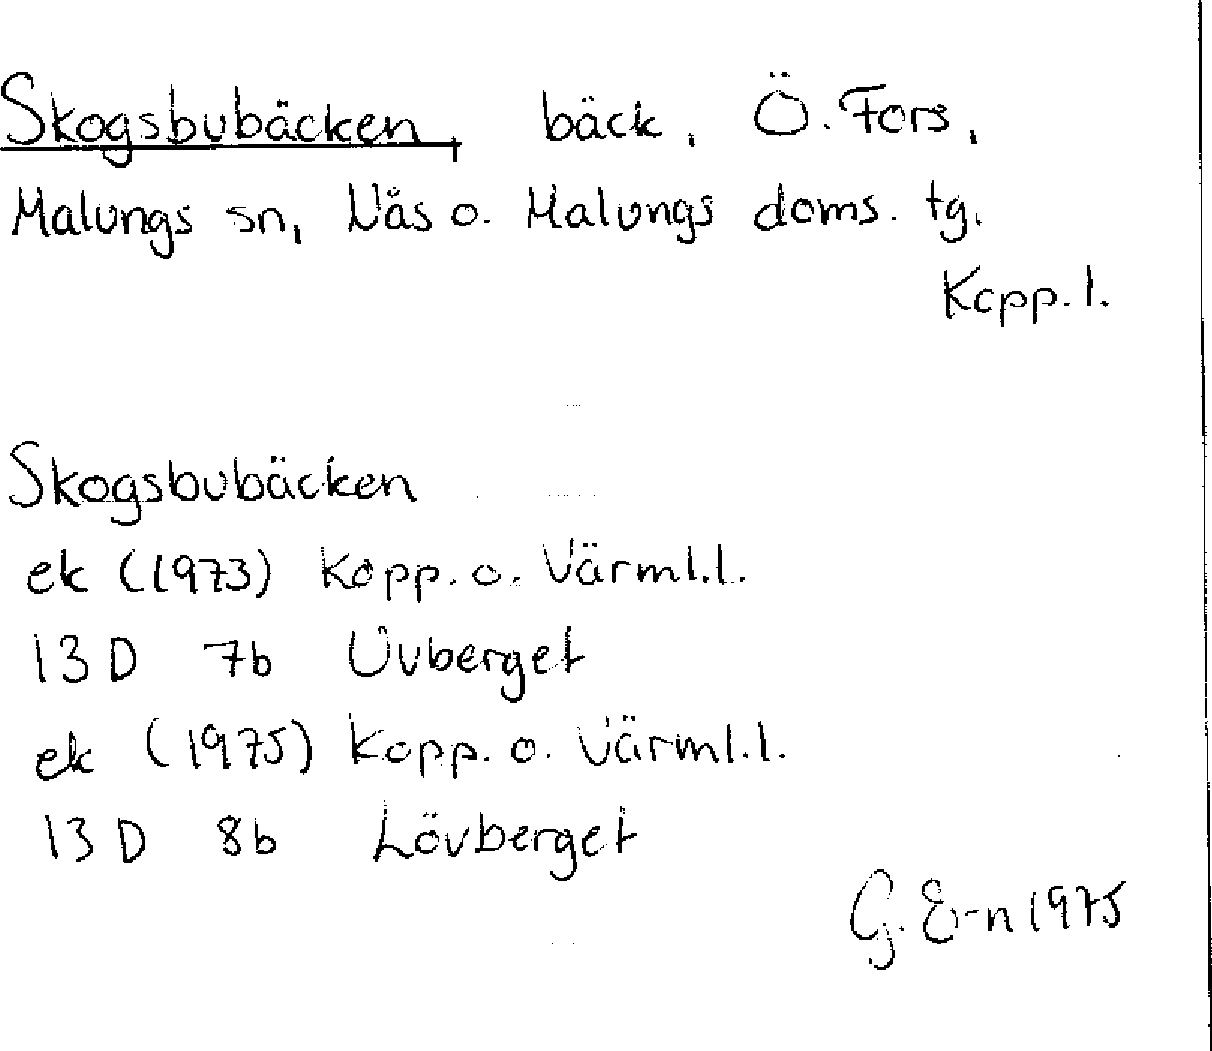 Skogsbubäcken, bäck, Ö. Fors,
Malungs sn, Näs o. Malungs doms. tg.
Kopp. l.
Skogsbubäcken
ek (1973) Kopp. o. Värml.l.
13 D 7b Uvberget
ek (1975) Kopp. o. Värml.l.
13 D 8b Lövberget
G. E-n 1975